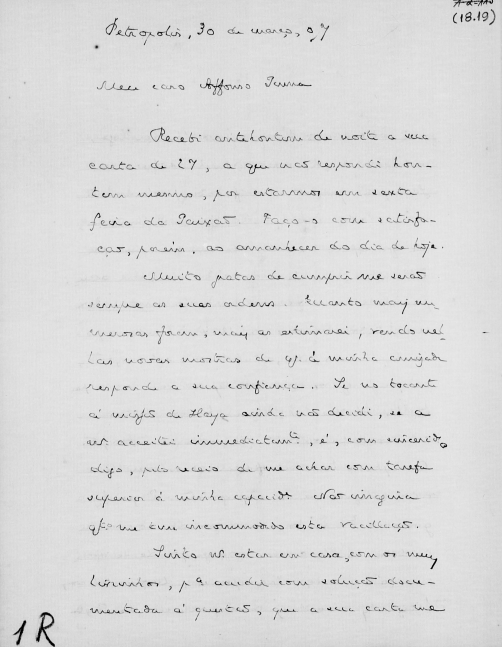 A-2-113
(18.19)
Petropolis, 30 de março, 07
Meu caro Affonso Penna
Recebi antehontem de noite a sua
carta de 27, a que não respondi hon-
tem mesmo, por estarmos em sexta
feira da Paixão. Faço-o com satisfa-
ção, porém, ao amanhecer do dia de hoje.
Muito gratas de cumprir me serão
sempre as suas ordens. Quanto mais nu-
merosas forem, mais as estimarei, vendo nel-
las novas mostras de q. á minha amizade
responde a sua confiança. Se no tocante
á missão de Haya ainda não decidi, se a
não acceitei immediatamte, é, com sincerid.
digo, pelo receio de me achar com tarefa
superior á minha capacide. Não imagina
qto me tem incommodado esta vacillação.
Sinto não estar em casa, com os meus
livrinhos, pa acudir com solução docu-
mentada á questão, que a sua carta me
1R